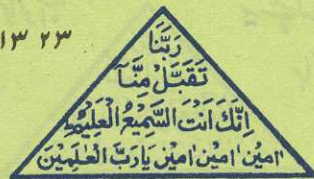 ۱۳ ۲۳
رَبَّنَا
تَقَبَّلْ مِنَّآ
اِنَّكَ اَنْتَ السَّمِيْعُ الْعَلِيْمُ
اٰمِيْن اٰمِيْن اٰمِيْن يَارَبَّ الْعٰلَمِيْنَ